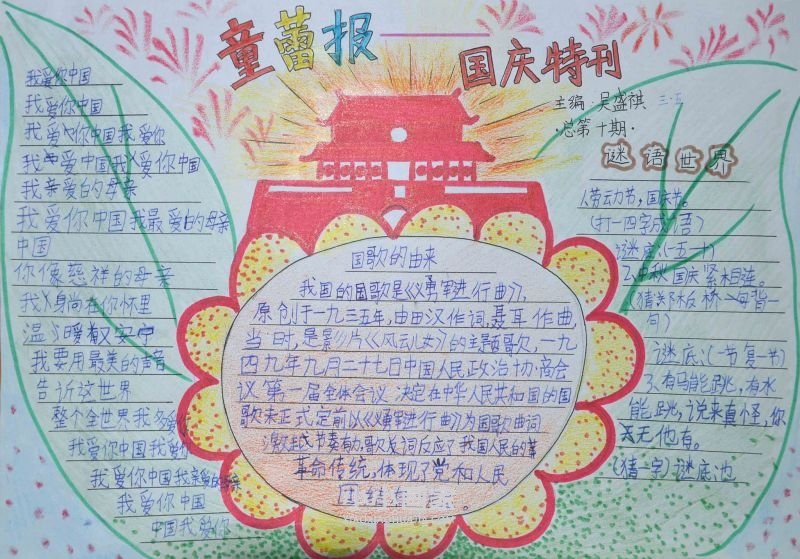 童蕾报
国庆特刊
主编:吴盛祺 三·五
·总第十期·
我爱你中国
我爱你中国
我爱你中国我爱你
我爱中国我爱你中国
我亲爱的母亲
我爱你中国我最爱的母亲
中国
你像慈祥的母亲
我身尚在你怀里
温暖又安宁
我要用最美的声音
告诉这世界
整个全世界我多
我爱你中国我爱你
我爱你中国我亲爱的母亲
我爱你中国
中国我爱你
国歌的由来
我国的国歌是《义勇军进行曲》,
原创于一九三五年,由田汉作词,聂耳作曲,
当时,是影片《风云儿女》的主题歌,一九
四九年九月二十七日中国人民政治协商会
议第一届全体会议决定在中华人民共和国的国
歌未正式定前以《义勇军进行曲》为国歌曲词
激壮节奏有力,歌词反应了我国人民的革
革命传统,体现了党和人民
团结
谜语世界
1、劳动力节,国庆节。
(打一四字成语)
谜底:(五一十)
2、中秋国庆紧相连。
(猜郑板桥一句
句)
谜底:(一节复一节)
3、有马能跳,有水
能跳,说来真怪,你
我无他有。
(猜一字)谜底:也